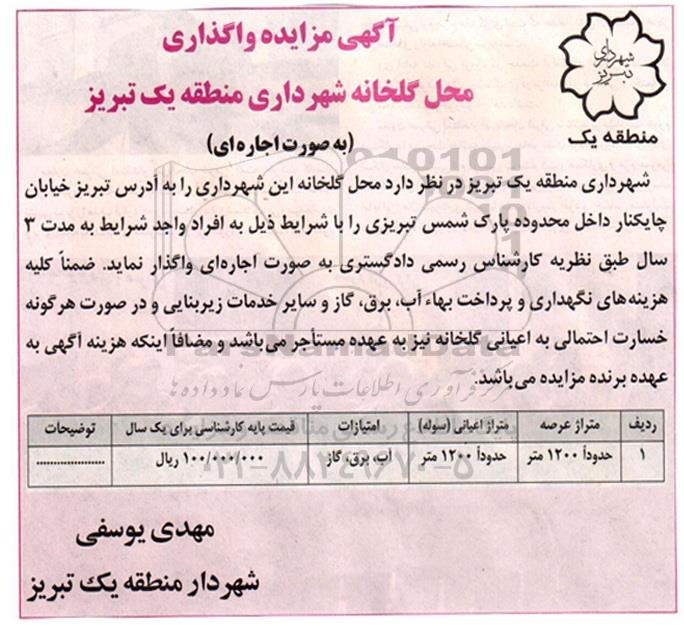 شهرداری
تبریز
منطقه یک
آگهی مزایده واگذاری
محل گلخانه شهرداری منطقه یک تبریز
(به صورت اجاره‌ای)
شهرداری منطقه یک تبریز در نظر دارد محل گلخانه این شهرداری را به آدرس تبریز خیابان
چایکنار داخل محدوده پارک شمس تبریزی را با شرایط ذیل به افراد واجد شرایط به مدت ۳
سال طبق نظریه کارشناس رسمی دادگستری به صورت اجاره‌ای واگذار نماید. ضمناً کلیه
هزینه‌های نگهداری و پرداخت بهاء آب، برق، گاز و سایر خدمات زیربنایی و در صورت هرگونه
خسارت احتمالی به اعیانی گلخانه نیز به عهده مستأجر می‌باشد و مضافاً اینکه هزینه آگهی به
عهده برنده مزایده می‌باشد.
ردیف متراژ عرصه متراژ اعیانی (سوله) امتیازات قیمت پایه کارشناسی برای یک سال توضیحات
۱ حدوداً ۱۲۰۰ متر حدوداً ۱۲۰۰ متر آب، برق، گاز ۱۰۰/۰۰۰/۰۰۰ ریال ....................
مهدی یوسفی
شهردار منطقه یک تبریز
ParsNamadData
مرکز فرآوری اطلاعات پارس نماد داده ها
۰۲۱-۸۸۳۴۹۶۷۰-۵